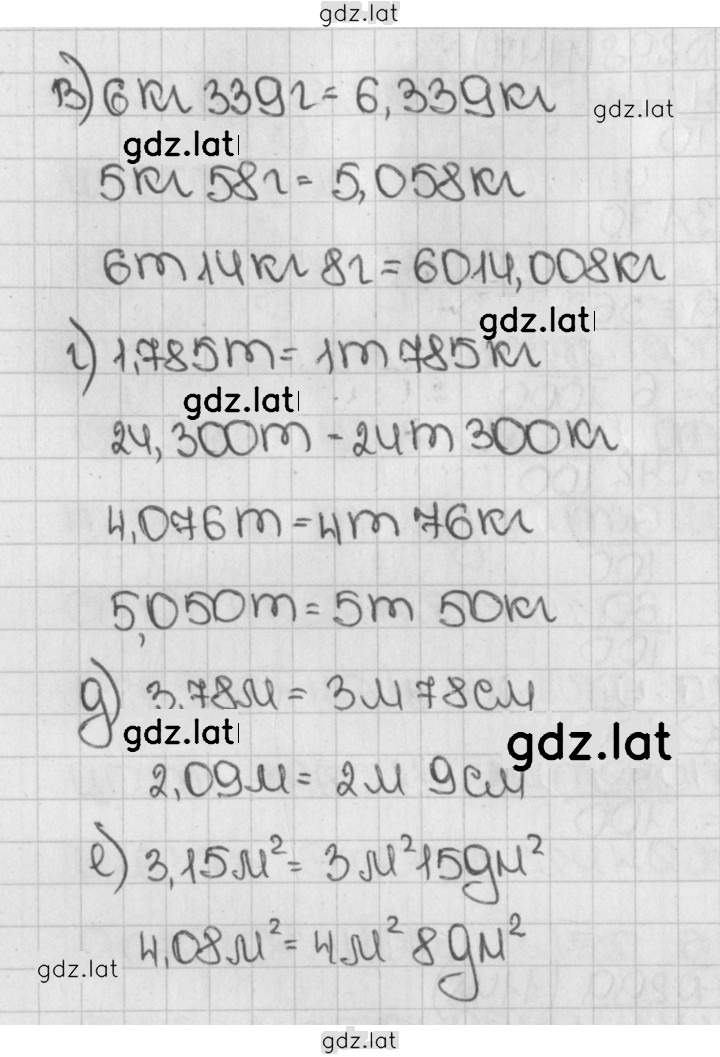 gdz.lat
в) 6 кг 339 г = 6,339 кг
gdz.lat
gdz.lat
5 кг 58 г = 5,058 кг
6 т 14 кг 8 г = 6014,008 кг
gdz.lat
г) 1,785 т = 1 т 785 кг
gdz.lat
24,300 т - 24 т 300 кг
4,076 т = 4 т 76 кг
5,050 т = 5 т 50 кг
д) 3,78 м = 3 м 78 см
gdz.lat
gdz.lat
2,09 м = 2 м 9 см
е) 3,15 м² = 3 м² 15 дм²
4,08 м² = 4 м² 8 дм²
gdz.lat
gdz.lat